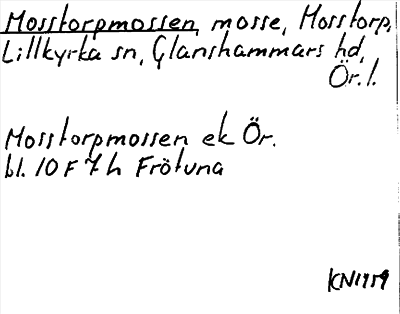 Mosstorpmossen, mosse, Mosstorp,
Lillkyrka sn, Glanshammars hd,
Ör. l.
Mosstorpmossen ek Ör.
bl. 10 F 7 h Frötuna